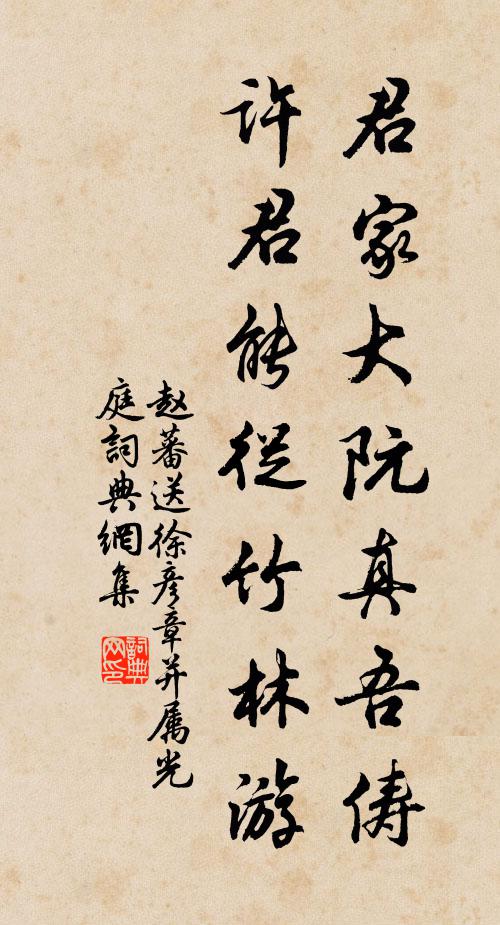 君家大阮真吾俦
许君能從竹林游
赵蕃送徐彦章并属光
庭詞典網集
詞典
网印